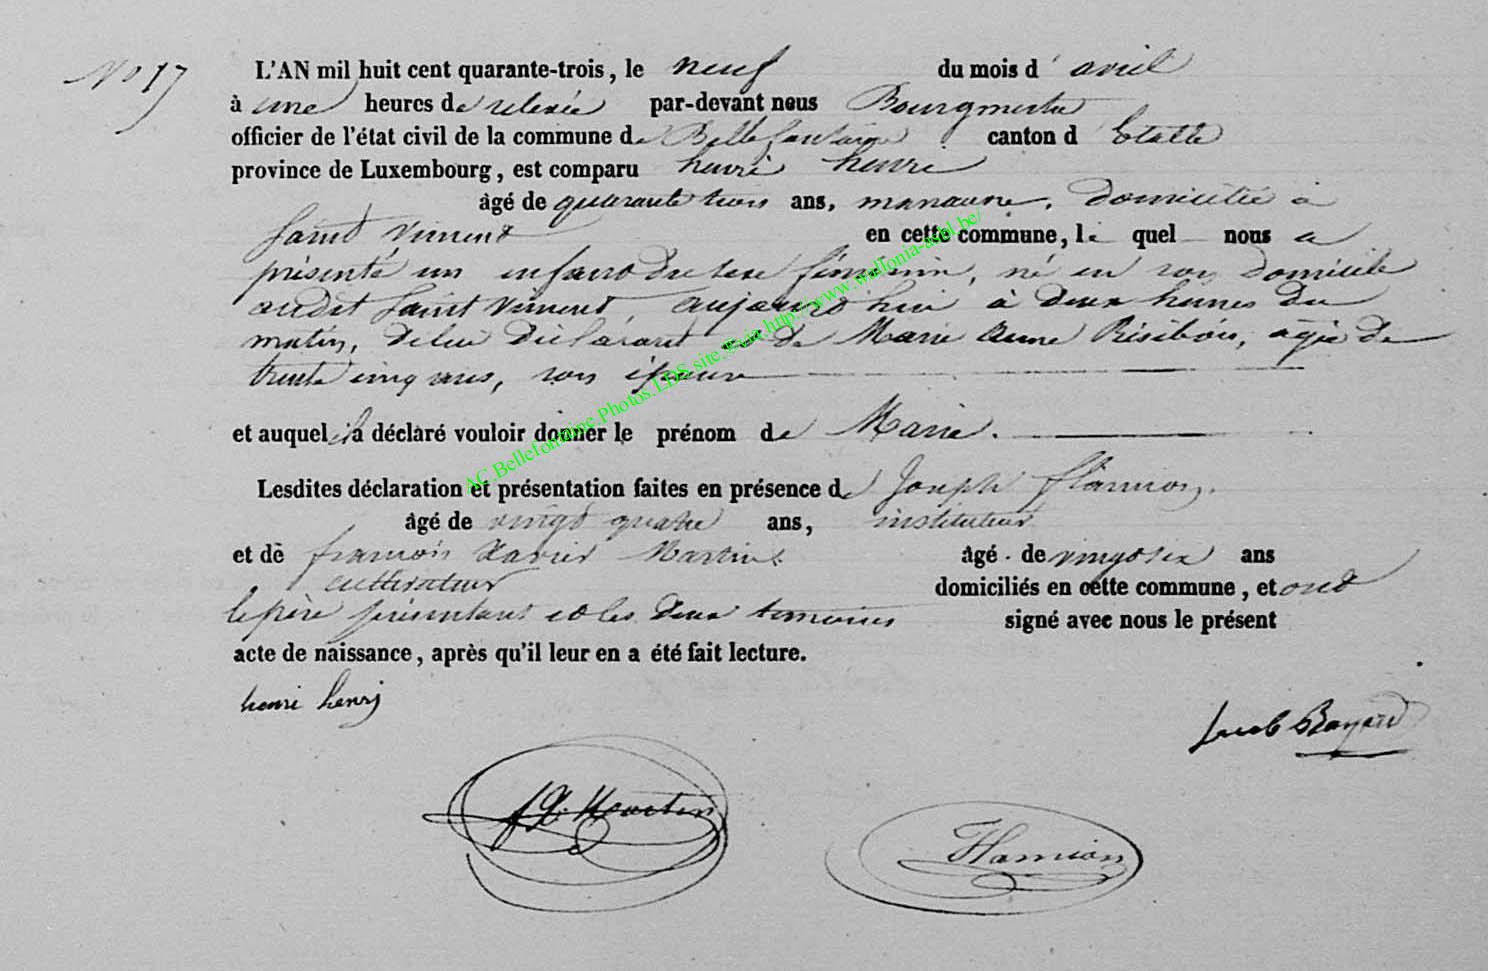 No 17
L'AN mil huit cent quarante-trois, le neuf du mois d'avril
à une heures de relevée par-devant nous Bourgmestre
officier de l'état civil de la commune de Bellefontaine canton d'Etalle
province de Luxembourg, est comparu henri henri
âgé de quarante trois ans, manœuvre, domicilié à
Saint Vincent en cette commune, lequel nous a
présenté un enfant du sexe féminin, né en son domicile
audit Saint Vincent, aujourd'hui à deux heures du
matin, de lui déclarant et de Marie Anne Risibois, agée de
trente cinq ans, son épouse
et auquel il a déclaré vouloir donner le prénom de Marie.
Lesdites déclaration et présentation faites en présence de Joseph flamion,
âgé de vingt quatre ans, instituteur
et de françois Xavier Martin âgé de vingt six ans
cultivateur domiciliés en cette commune, et ont
le père présentant et les deux temoins signé avec nous le présent
acte de naissance, après qu'il leur en a été fait lecture.
henri henri
Jacob Bayard
f X Martin
Flamion
AC.Bellefontaine.Photos.LDS.site.Wain.http://www.wallonia-asbl.be/